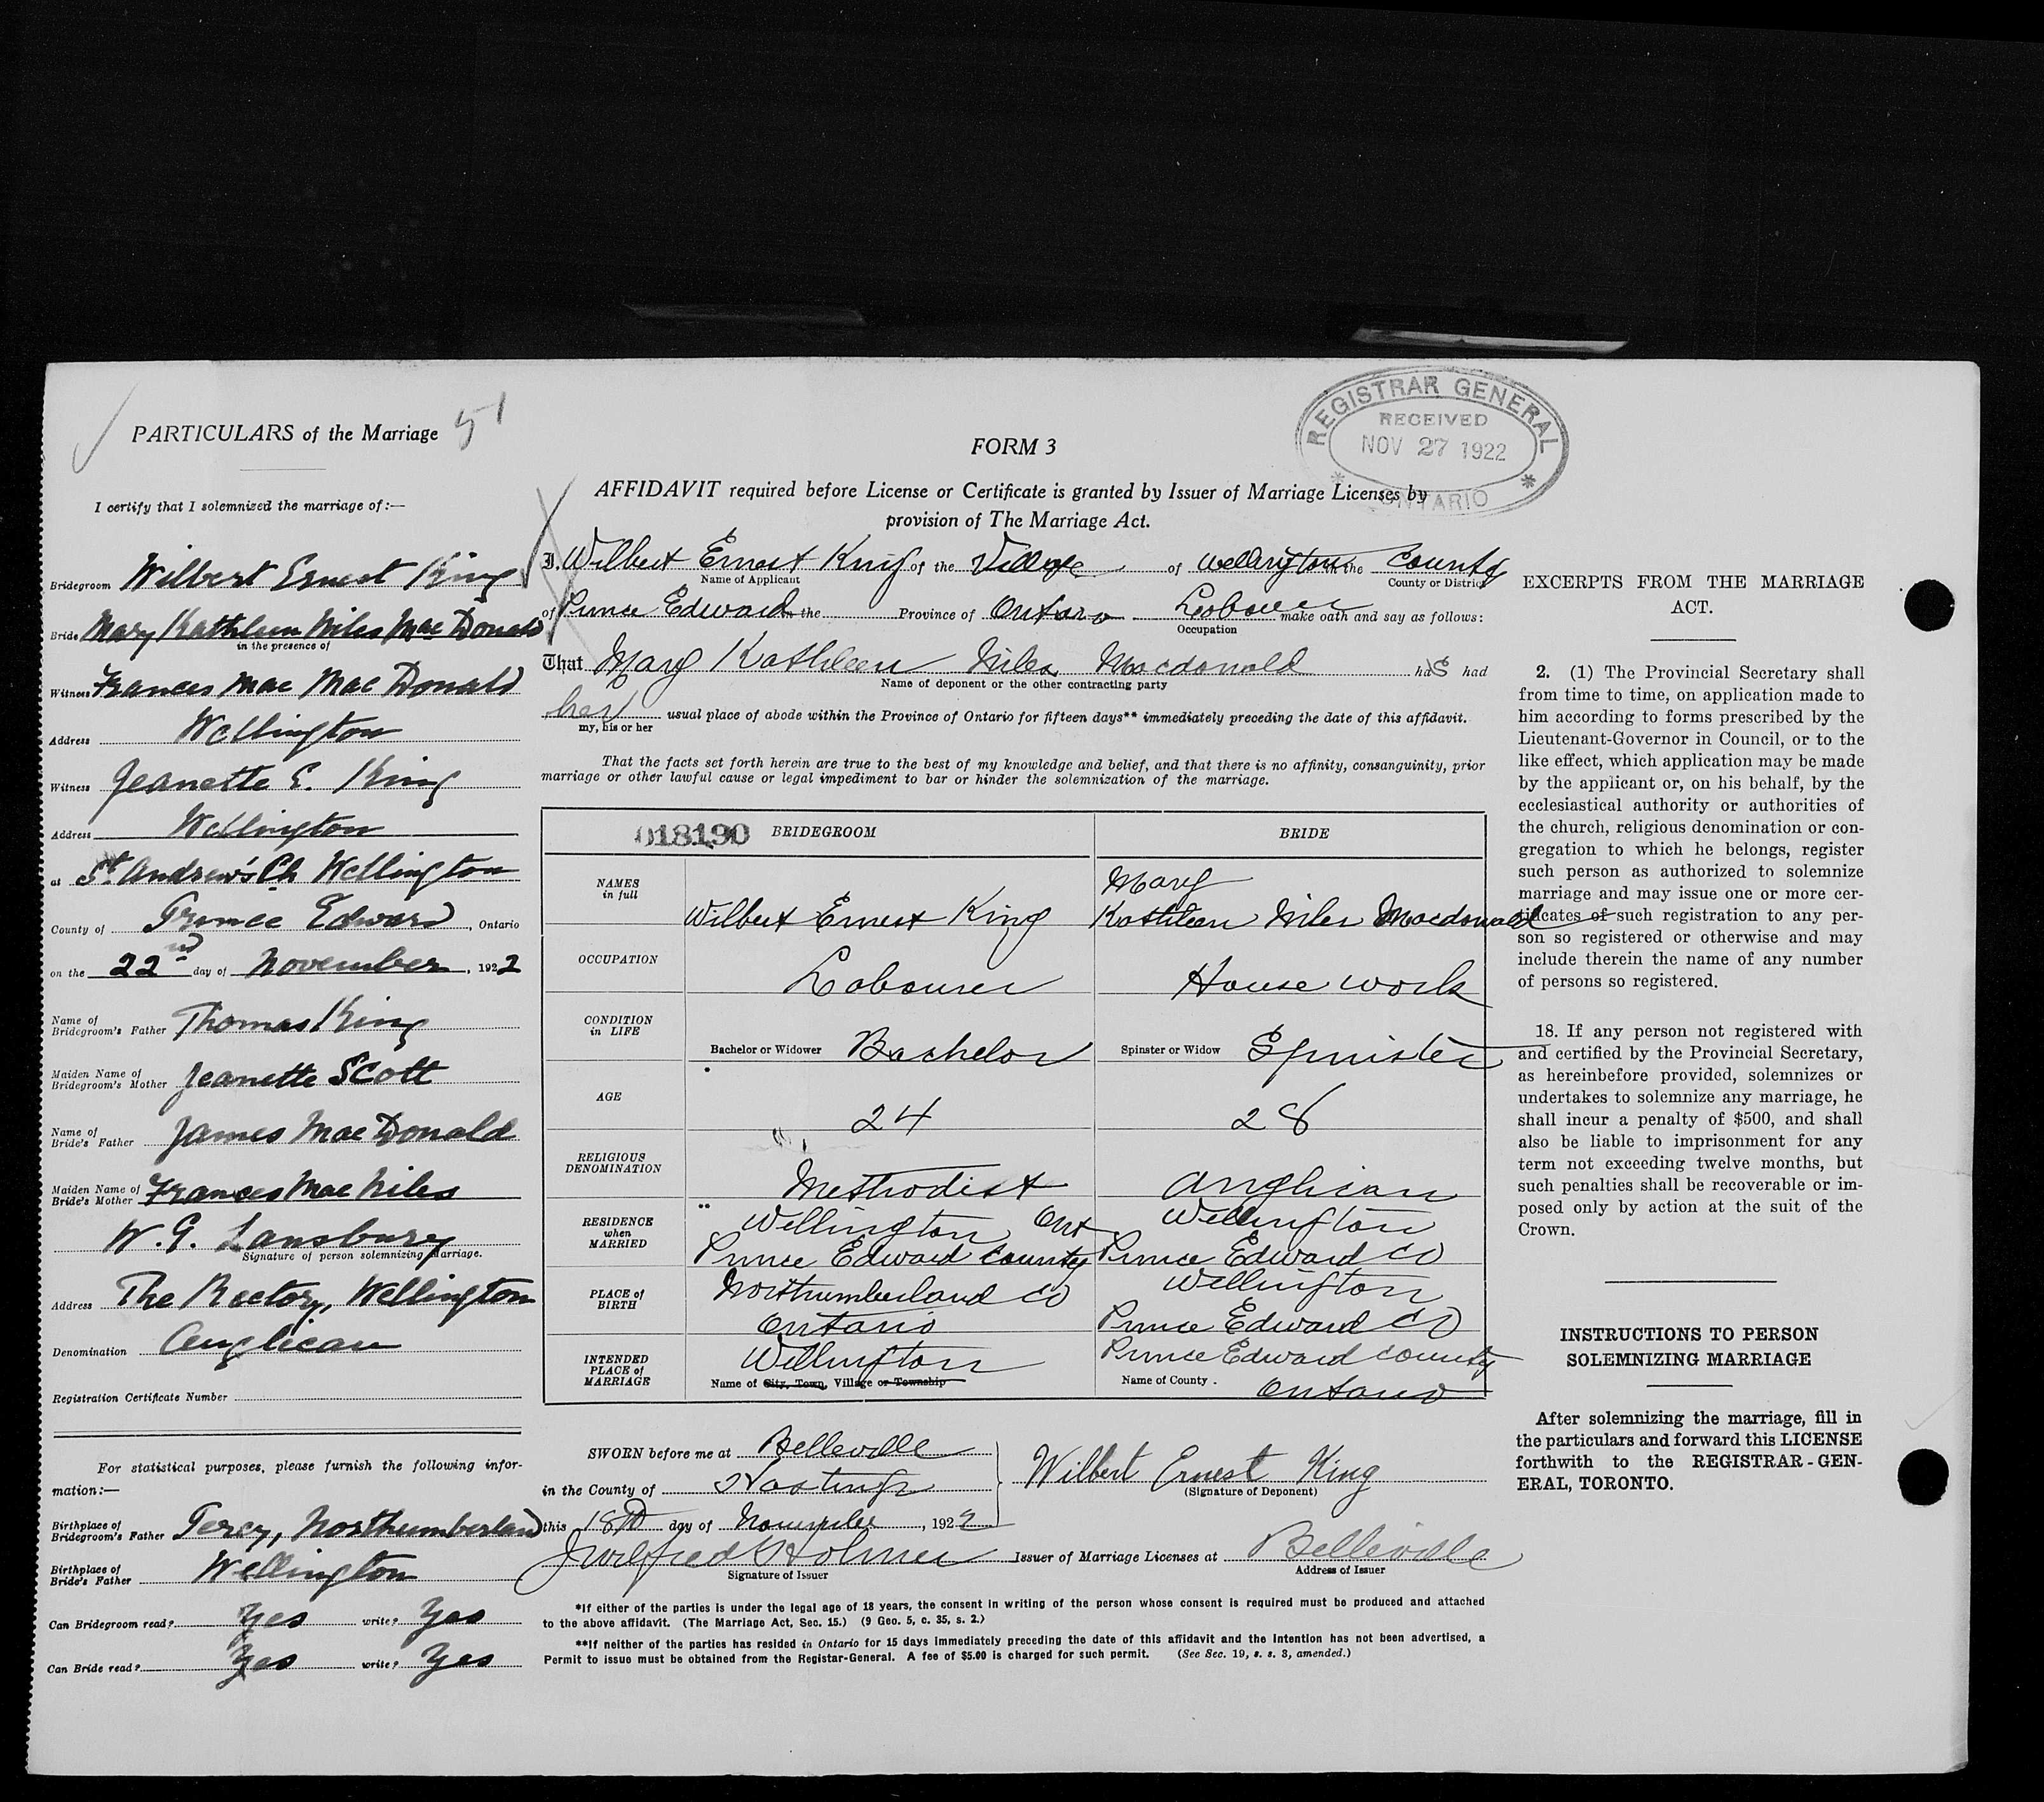 PARTICULARS of the Marriage 51
I certify that I solemnized the marriage of:—
Bridegroom Wilbert Ernest King
Bride Mary Kathleen Niles MacDonald
in the presence of
Witness Frances Mae MacDonald
Address Wellington
Witness Jeanette E. King
Address Wellington
at St. Andrew's Ch Wellington
County of Prince Edward, Ontario
on the 22nd day of November, 1922
Name of
Bridegroom's Father Thomas King
Maiden Name of
Bridegroom's Mother Jeanette Scott
Name of
Bride's Father James MacDonald
Maiden Name of
Bride's Mother Frances Mae Niles
W. G. Lansbury
Signature of person solemnizing Marriage.
Address The Rectory, Wellington
Denomination Anglican
Registration Certificate Number
For statistical purposes, please furnish the following infor-
mation:—
Birthplace of
Bridegroom's Father Percy, Northumberland
Birthplace of
Bride's Father Wellington
Can Bridegroom read? Yes write? Yes
Can Bride read? Yes write? Yes
REGISTRAR GENERAL
RECEIVED
NOV 27 1922
* ONTARIO *
FORM 3
AFFIDAVIT required before License or Certificate is granted by Issuer of Marriage Licenses by
provision of The Marriage Act.
I, Wilbert Ernest King of the Village of Wellington in the County
Name of Applicant County or District
of Prince Edward in the Province of Ontario Labourer make oath and say as follows:
Occupation
That Mary Kathleen Niles Macdonald haS had
Name of deponent or the other contracting party
her usual place of abode within the Province of Ontario for fifteen days** immediately preceding the date of this affidavit.
my, his or her
That the facts set forth herein are true to the best of my knowledge and belief, and that there is no affinity, consanguinity, prior
marriage or other lawful cause or legal impediment to bar or hinder the solemnization of the marriage.
018190 BRIDEGROOM BRIDE
NAMES
in full
Wilbert Ernest King
Mary
Kathleen Niles Macdonald
OCCUPATION
Labourer House work
CONDITION
in LIFE
Bachelor or Widower Bachelor Spinster or Widow Spinster
AGE
24 28
RELIGIOUS
DENOMINATION
Methodist Anglican
RESIDENCE
when
MARRIED
Wellington Ont
Prince Edward County
Wellington
Prince Edward Co
PLACE of
BIRTH
Northumberland Co
Ontario
Wellington
Prince Edward Co
INTENDED
PLACE of
MARRIAGE
Wellington
Name of City, Town, Village or Township
Prince Edward County
Name of County. Ontario
SWORN before me at Belleville
in the County of Hastings
this 18th day of November, 1922
Wilbert Ernest King
(Signature of Deponent)
J Wilfred Holmes Issuer of Marriage Licenses at Belleville
Signature of Issuer Address of Issuer
*If either of the parties is under the legal age of 18 years, the consent in writing of the person whose consent is required must be produced and attached
to the above affidavit. (The Marriage Act, Sec. 15.) (9 Geo. 5, c. 35, s. 2.)
**If neither of the parties has resided in Ontario for 15 days immediately preceding the date of this affidavit and the Intention has not been advertised, a
Permit to issue must be obtained from the Registar-General. A fee of $5.00 is charged for such permit. (See Sec. 19, s. s. 3, amended.)
EXCERPTS FROM THE MARRIAGE
ACT.
2. (1) The Provincial Secretary shall
from time to time, on application made to
him according to forms prescribed by the
Lieutenant-Governor in Council, or to the
like effect, which application may be made
by the applicant or, on his behalf, by the
ecclesiastical authority or authorities of
the church, religious denomination or con-
gregation to which he belongs, register
such person as authorized to solemnize
marriage and may issue one or more cer-
tificates of such registration to any per-
son so registered or otherwise and may
include therein the name of any number
of persons so registered.
18. If any person not registered with
and certified by the Provincial Secretary,
as hereinbefore provided, solemnizes or
undertakes to solemnize any marriage, he
shall incur a penalty of $500, and shall
also be liable to imprisonment for any
term not exceeding twelve months, but
such penalties shall be recoverable or im-
posed only by action at the suit of the
Crown.
INSTRUCTIONS TO PERSON
SOLEMNIZING MARRIAGE
After solemnizing the marriage, fill in
the particulars and forward this LICENSE
forthwith to the REGISTRAR-GEN-
ERAL, TORONTO.